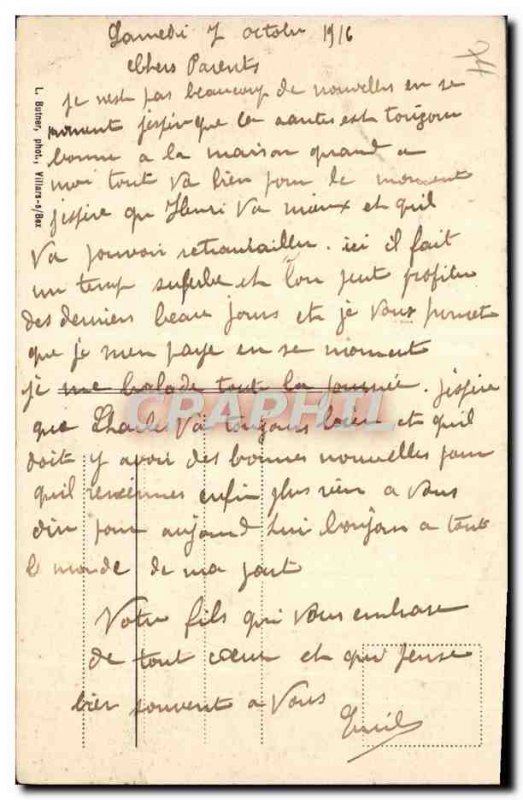 Samedi 7 octobre 1916
Chers Parents
je nest pas beaucoup de nouvelles en se
moment jespire que la santes est toujour
bonne a la maison quand a
moi tout va bien pour le moment
jespire que Henri va mieux et quil
va pouvoir retravailler. ici il fait
un temp superbe et lon peut profiter
des derniers beau jours et je vous promet
que je men paye en se moment
je me balade tout la journée. jespire
que Charle va toujours bien et quil
doit y avoir des bonnes nouvelles pour
quil reviennes enfin plus rien a vous
dire pour aujourd hui bonjour a tout
le monde de ma part
Votre fils qui vous embrase
de tout cœur et qui pense
bien souvent a vous
Emile
L. Butner, phot., Villars-s/Bex
CRAPHIL